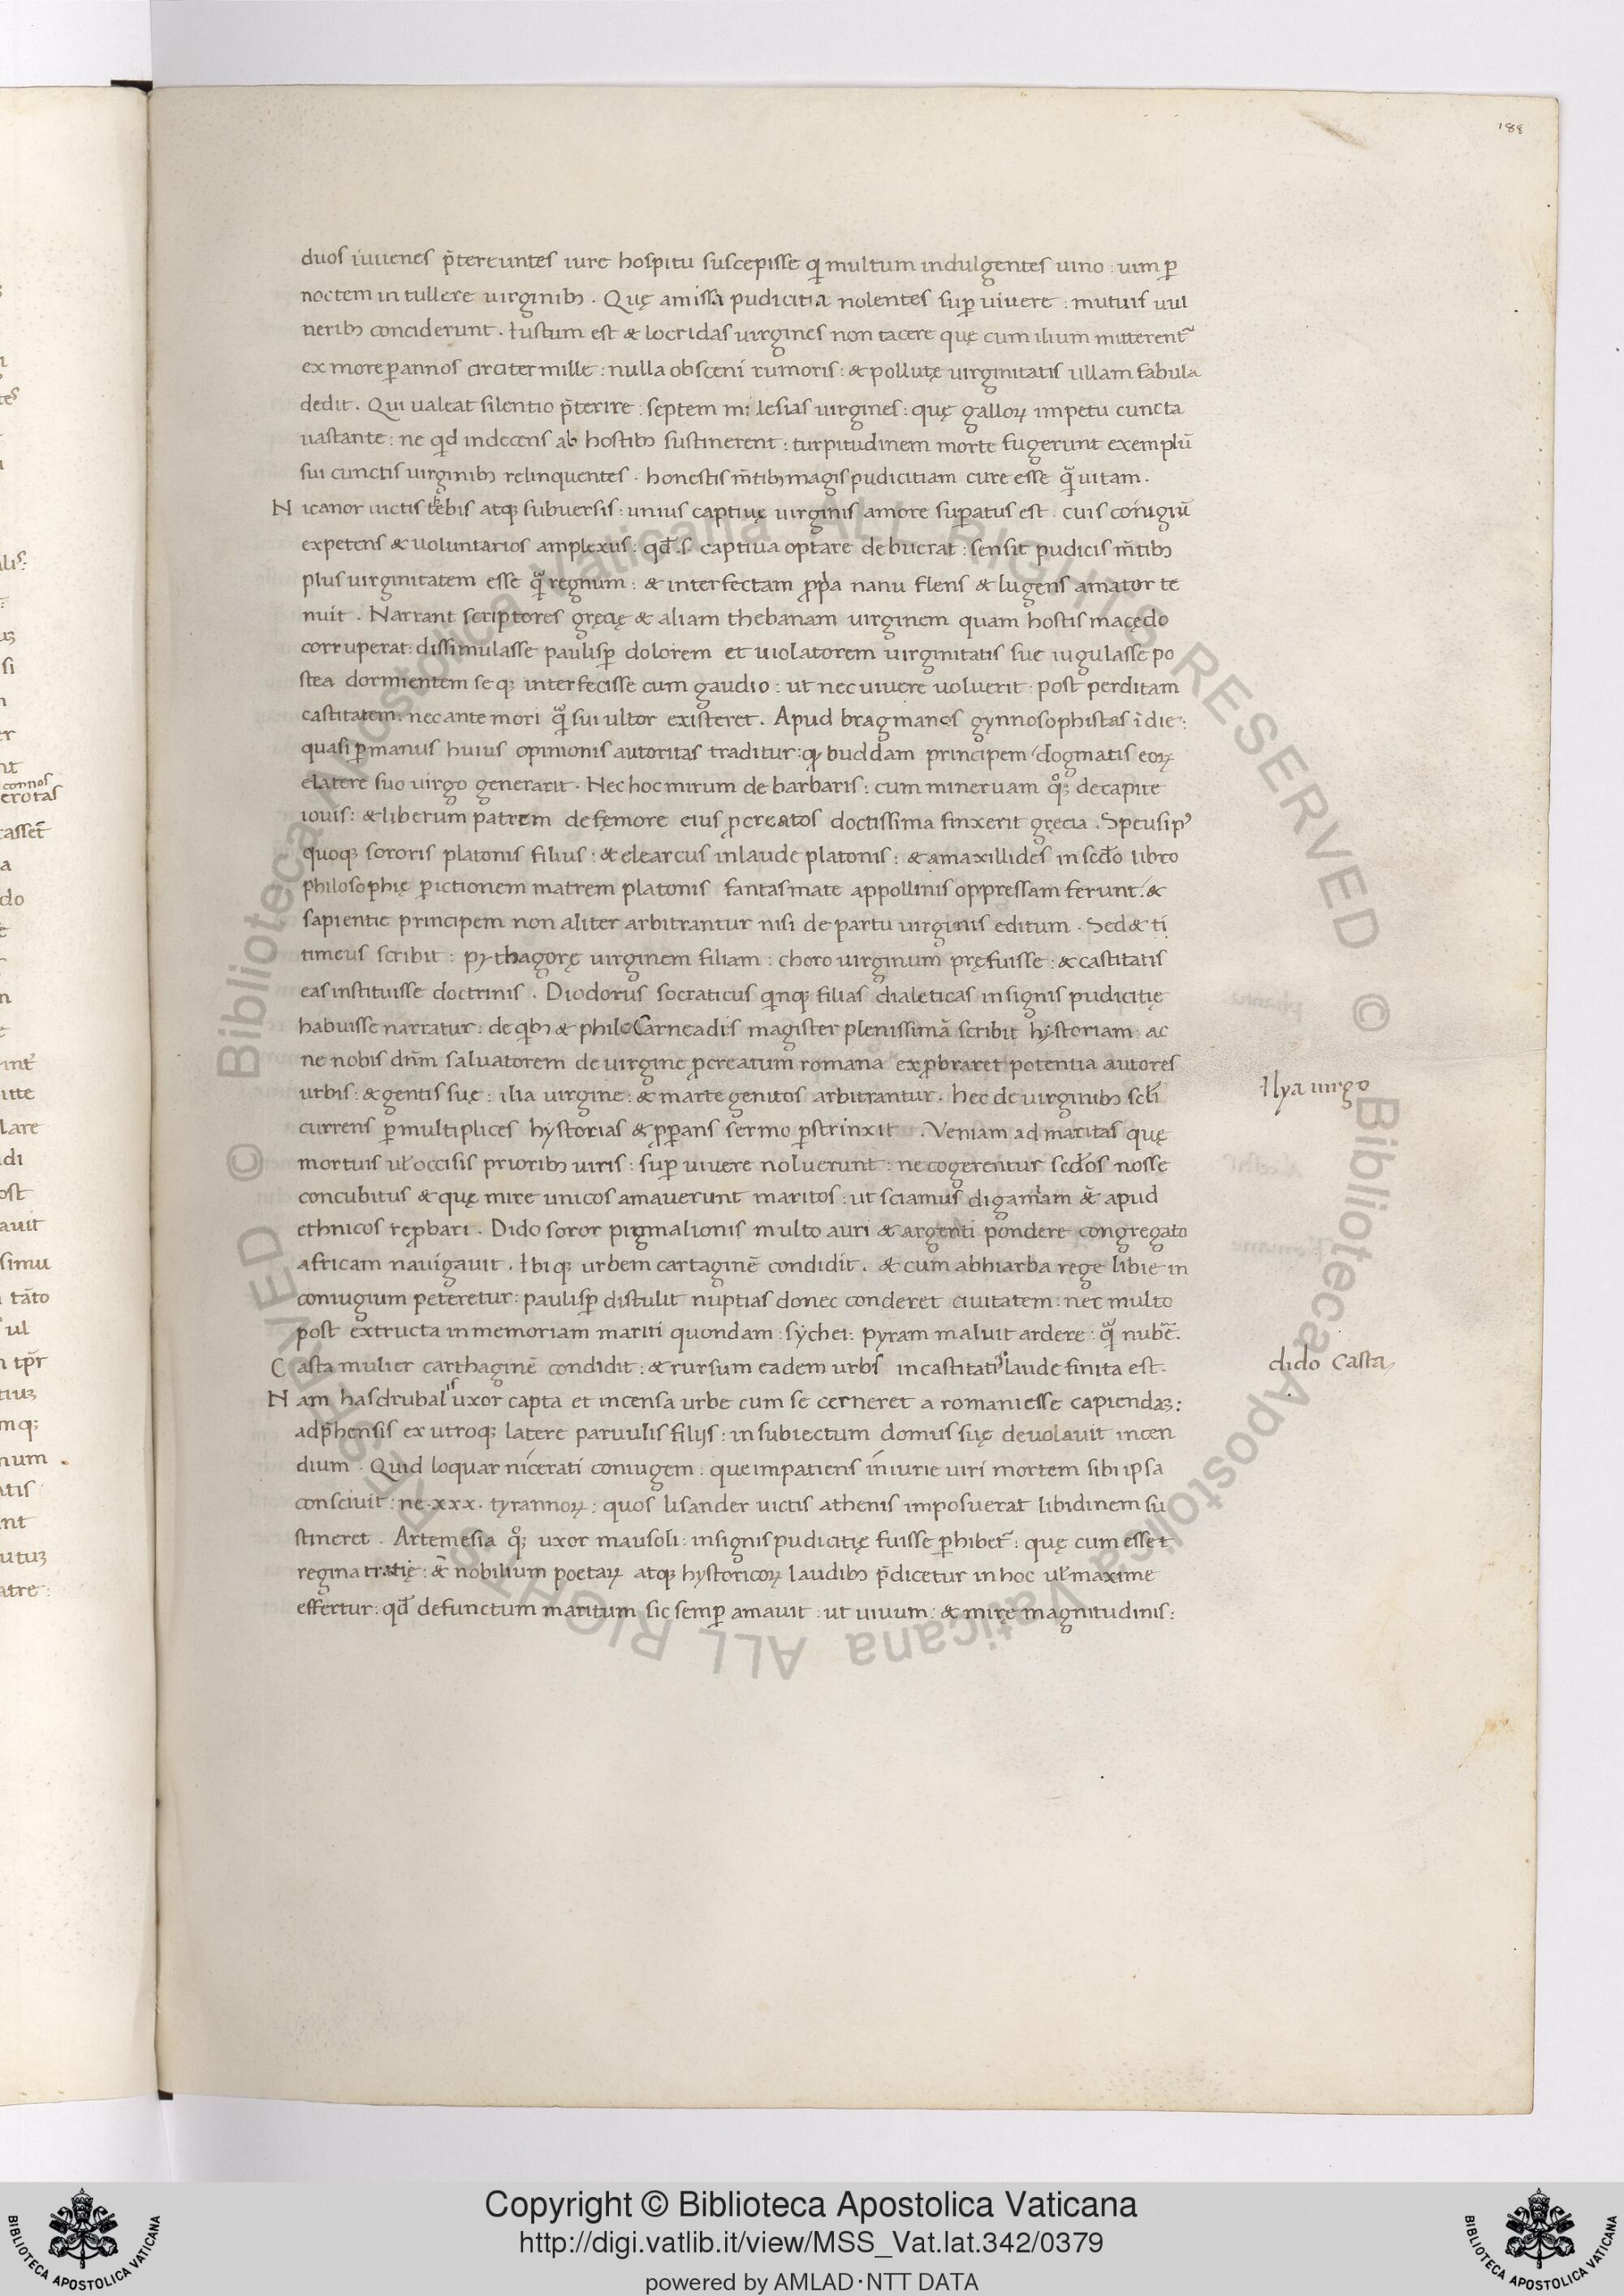 188
duos iuuenes p̄tereuntes iure hospitii suscepisse qi multum indulgentes uino : uim ꝑ
noctem intullere uirginibꝫ . Quę amissa pudicitia nolentes suꝑ uiuere : mutuis uul
neribꝫ conciderunt . Iustum est & locridas uirgines non tacere quę cum ilium mitterent᷑
ex more ꝑannos circiter mille : nulla obsceni rumoris : & pollutę uirginitatis ullam fabula
dedit . Qui ualeat silentio p̄terire : septem milesias uirgines : quę galloꝝ impetu cuncta
uastante : ne qd indecens ab hostibꝫ sustinerent : turpitudinem morte fugerunt exemplū
sui cunctis uirginibꝫ relinquentes . honestis m̄tibꝫ magis pudicitiam cure esse qͣ̄ uitam .
Nicanor uictis thebis atqꝫ subuersis : unius captiuę uirginis amore suꝑatus est . cuis coniugiū
expetens & uoluntarios amplexus : qd̄ .s. captiua optare debuerat : sensit pudicis m̄tibꝫ
plus uirginitatem esse qͣ̄ regnum : & interfectam ꝓpͥa nanu flens & lugens amator te
nuit . Narrant scriptores gręcię & aliam thebanam uirginem quam hostis macędo
corruperat : dissimulasse paulisꝑ dolorem et uiolatorem uirginitatis sue iugulasse po
stea dormientem seqꝫ interfecisse cum gaudio : ut nec uiuere uoluerit post perditam
castitatem : nec ante mori qͣ̄ sui ultor existeret . Apud bragmanos gynnosophistas īdie :
quasi ꝑmanus huius opinionis autoritas traditur : qꝫ buddam principem dogmatis eoꝝ
elatere suo uirgo generarit . Nec hoc mirum de barbaris : cum mineruam qͦꝫ decapite
iouis : & liberum patrem defęmore eius ꝓcreatos doctissima finxerit gręcia . Speusipꝰ
quoqꝫ sororis platonis filius : & elearcus inlaude platonis : & amaxillides in sed̄o libro
philosophię ꝑictionem matrem platonis fantasmate appollinis oppressam ferunt . &
sapientie principem non aliter arbitrantur nisi de partu uirginis editum . Sed & ti
timeus scribit : pythagorę uirginem filiam : choro uirginum pręfuisse : & castitatis
eas instituisse doctrinis . Diodorus socraticus qinqꝫ filias dialeticas insignis pudicitię
habuisse narratur : de qibꝫ & philo Carneadis magister plenissimā scribit hystoriam : ac
ne nobis dn̄m saluatorem de uirgine ꝓcreatum romana exꝓbraret potentia autores
urbis : & gentis suę : ilia uirgine : & marte genitos arbitrantur . hec de uirginibꝫ scl̄i
currens ꝑmultiplices hystorias & ꝓꝑans sermo ꝑstrinxit . Veniam ad maritas quę
mortuis ul̄ occisis prioribꝫ uiris : suꝑ uiuere noluerunt : ne cogerentur sed̄os nosse
concubitus & quę mire unicos amauerunt maritos : ut sciamus digamiam &̄ apud
ethnicos reꝓbari . Dido soror pigmalionis multo auri & argenti pondere congregato
africam nauigauit . Ibiqꝫ urbem cartaginē condidit . & cum abhiarba rege libie in
coniugium peteretur : paulisꝑ distulit nuptias donec conderet ciuitatem : nec multo
post extructa in memoriam mariti quondam : sychei : pyram maluit ardere : qͣ̄ nubēr̄ .
Casta mulier carthaginē condidit : & rursum eadem urbs incastitatis laude finita est .
Nam hasdrubalis uxor capta et incensa urbe cum se cerneret a romani esse capiendaꝫ :
adp̄hensis ex utroqꝫ latere paruulis filijs : in subiectum domus suę deuolauit incen
dium . Quid loquar nicerati coniugem : que impatiens iniurie uiri mortem sibi ipsa
consciuit : ne .xxx. tyrannoꝝ : quos lisander uictis athenis imposuerat libidinem su
stineret . Artemesia qͦꝫ uxor mausoli : insignis pudicitię fuisse ꝑhibet᷑ : quę cum esset
regina : &̄ nobilium poetaꝝ atqꝫ hystoricoꝝ laudibꝫ p̄dicetur in hoc ul̄ maxime
effertur : qd̄ defunctum maritum sic semꝑ amauit : ut uiuum : & mirę magnitudinis :
Ilya uirgo
dido casta
Copyright © Biblioteca Apostolica Vaticana
http://digi.vatlib.it/view/MSS_Vat.lat.342/0379
powered by AMLAD·NTT DATA